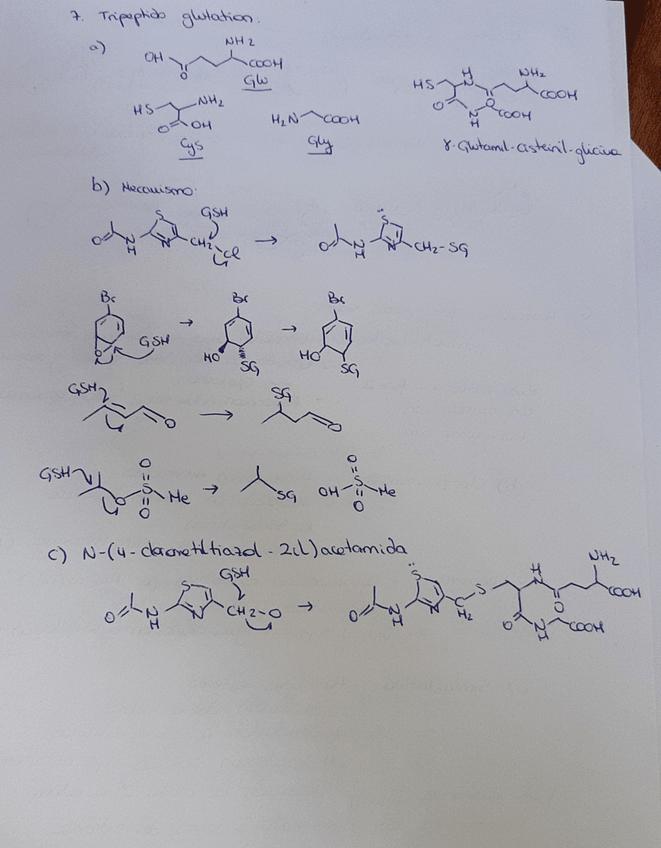 7. Tripeptido glutation.
a)
OH O NH2 COOH
Glu
HS NH2 O OH
Cys
H2N COOH
Gly
HS H N O NH2 COOH O N H COOH
γ-Glutamil-cisteinil-glicina
b) Mecanismo:
O N H S N CH2 Cl GSH → O N H S N CH2-SG
Br O GSH → Br HO SG → Br HO SG
GSH O → SG O
GSH O O S O Me → SG OH O S O Me
c) N-(4-clorometiltiazol-2il)acetamida
O N H S N CH2-O GSH → O N H S N C H2 S H N O NH2 COOH O N H COOH